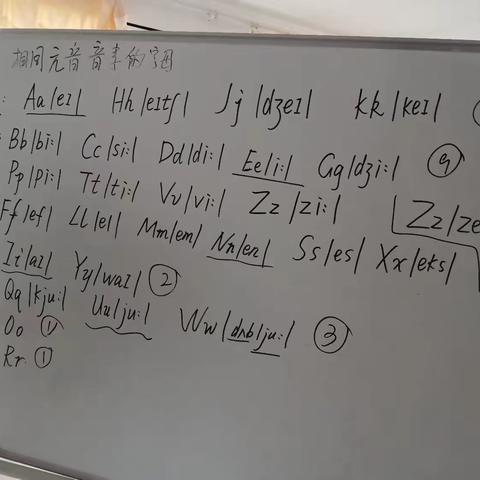 相同元音音素的字母
: Aa |eɪ| Hh |eɪtʃ| Jj |dʒeɪ| kk |keɪ|
Bb |bi:| Cc |si:| Dd |di:| Ee |i:| Gg |dʒi:| ⑨
Pp |pi:| Tt |ti:| Vv |vi:| Zz |zi:| Zz |ze
Ff |ef| Ll |el| Mm |em| Nn |en| Ss |es| Xx |eks|
Ii |aɪ| Yy |waɪ| ②
Qq |kju:| Uu |ju:| Ww |dʌb|ju:| ③
Oo ①
Rr ①